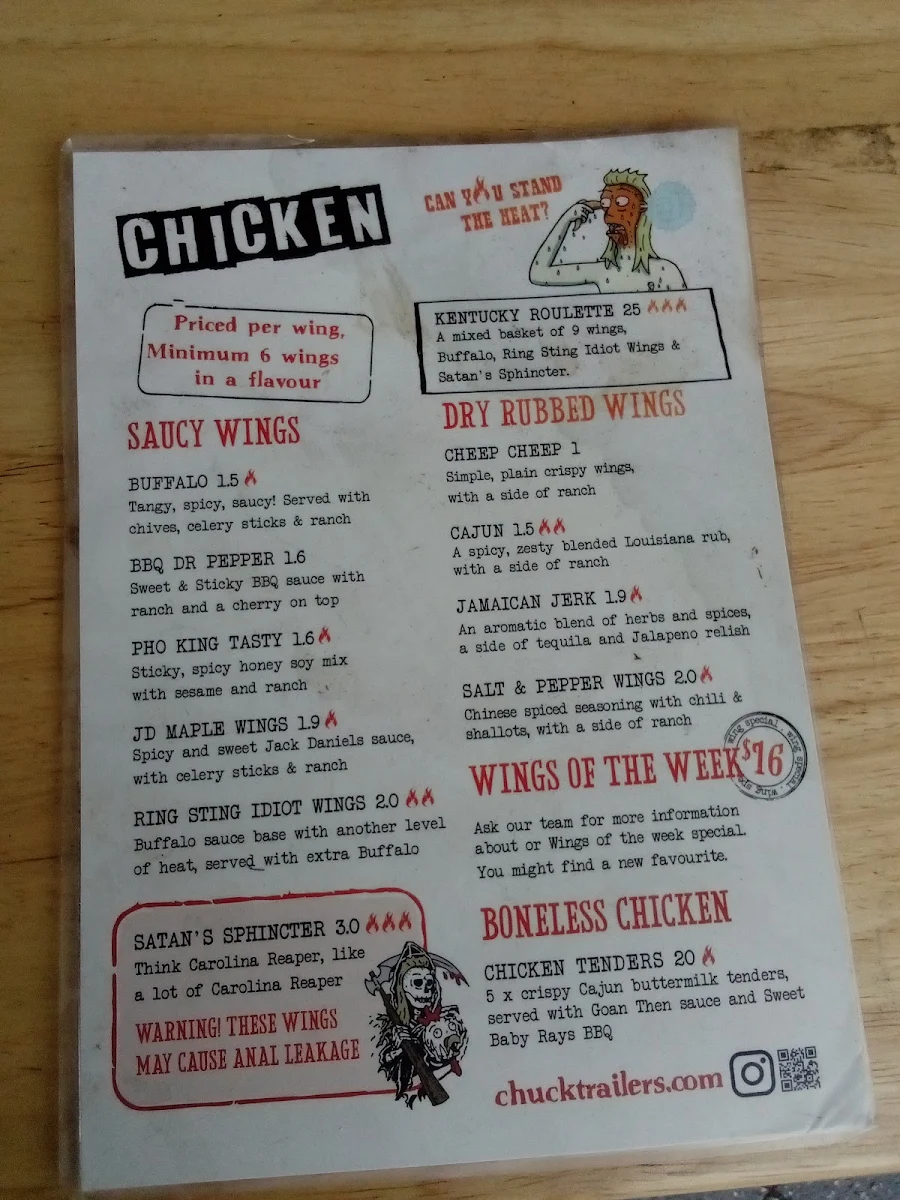 CHICKEN
CAN YOU STAND
THE HEAT?
Priced per wing,
Minimum 6 wings
in a flavour
KENTUCKY ROULETTE 25
A mixed basket of 9 wings,
Buffalo, Ring Sting Idiot Wings &
Satan's Sphincter.
SAUCY WINGS
BUFFALO 1.5
Tangy, spicy, saucy! Served with
chives, celery sticks & ranch
BBQ DR PEPPER 1.6
Sweet & Sticky BBQ sauce with
ranch and a cherry on top
PHO KING TASTY 1.6
Sticky, spicy honey soy mix
with sesame and ranch
JD MAPLE WINGS 1.9
Spicy and sweet Jack Daniels sauce,
with celery sticks & ranch
RING STING IDIOT WINGS 2.0
Buffalo sauce base with another level
of heat, served with extra Buffalo
SATAN'S SPHINCTER 3.0
Think Carolina Reaper, like
a lot of Carolina Reaper
WARNING! THESE WINGS
MAY CAUSE ANAL LEAKAGE
DRY RUBBED WINGS
CHEEP CHEEP 1
Simple, plain crispy wings,
with a side of ranch
CAJUN 1.5
A spicy, zesty blended Louisiana rub,
with a side of ranch
JAMAICAN JERK 1.9
An aromatic blend of herbs and spices,
a side of tequila and Jalapeno relish
SALT & PEPPER WINGS 2.0
Chinese spiced seasoning with chili &
shallots, with a side of ranch
WINGS OF THE WEEK
wing special . wing special . wing spe
$16
Ask our team for more information
about or Wings of the week special.
You might find a new favourite.
BONELESS CHICKEN
CHICKEN TENDERS 20
5 x crispy Cajun buttermilk tenders,
served with Goan Then sauce and Sweet
Baby Rays BBQ
chucktrailers.com